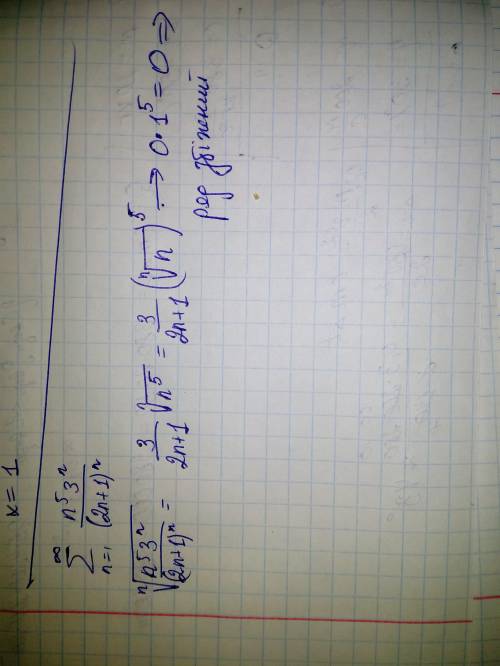 к = 1
∞
∑ n⁵3ⁿ / (2n+1)ⁿ
n=1
ⁿ√(n⁵3ⁿ / (2n+1)ⁿ) = 3/(2n+1) ⁿ√n⁵ = 3/(2n+1) (ⁿ√n)⁵ → 0·1⁵ = 0 ⇒
ряд збіжний